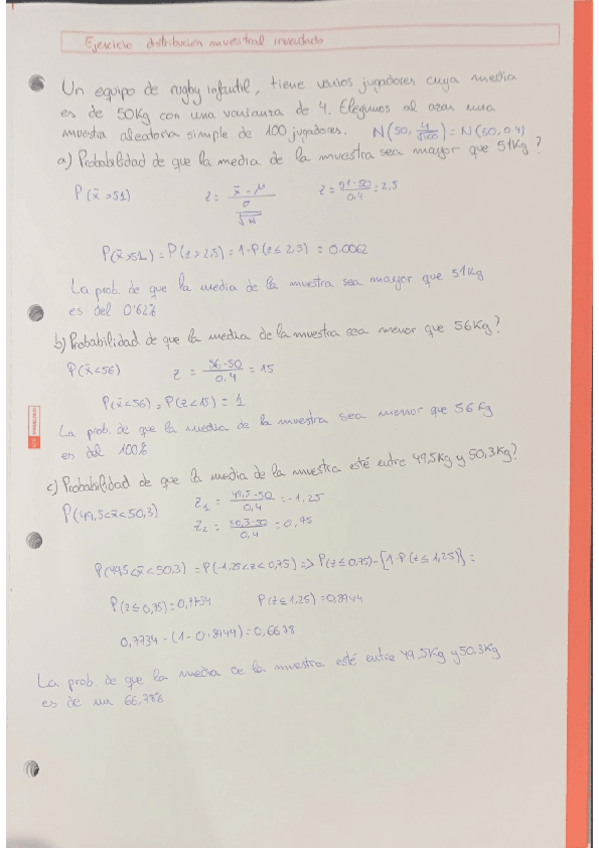 Ejercicio distribución muestral inventado
Un equipo de rugby infantil, tiene varios jugadores cuya media
es de 50Kg con una varianza de 4. Elegimos al azar una
muestra aleatoria simple de 100 jugadores. N(50, 4/√100) = N(50, 0.4)
a) Probabilidad de que la media de la muestra sea mayor que 51Kg?
P(x̄ >51) z = (x̄ - μ)/(σ/√N) z = (51-50)/0.4 = 2.5
P(x̄>51) = P(z > 2.5) = 1-P(z ≤ 2.5) = 0.0062
La prob. de que la media de la muestra sea mayor que 51Kg
es del 0'62%
b) Probabilidad de que la media de la muestra sea menor que 56Kg?
P(x̄<56) z = (56-50)/0.4 = 15
P(x̄<56) = P(z<15) = 1
La prob. de que la media de la muestra sea menor que 56 Kg
es del 100%
c) Probabilidad de que la media de la muestra esté entre 49,5Kg y 50,3Kg?
P(49,5<x̄<50,3) z₁ = (49,5-50)/0,4 = -1,25
z₂ = (50,3-50)/0.4 = 0,75
P(49,5<x̄<50,3) = P(-1,25<z<0,75) => P(z≤0,75)-[1-P(z≤1,25)] =
P(z≤0,75)=0,7734 P(z≤1,25)=0,8944
0,7734-(1-0.8944)=0,6678
La prob. de que la media de la muestra esté entre 49,5Kg y 50,3Kg
es de un 66,78%